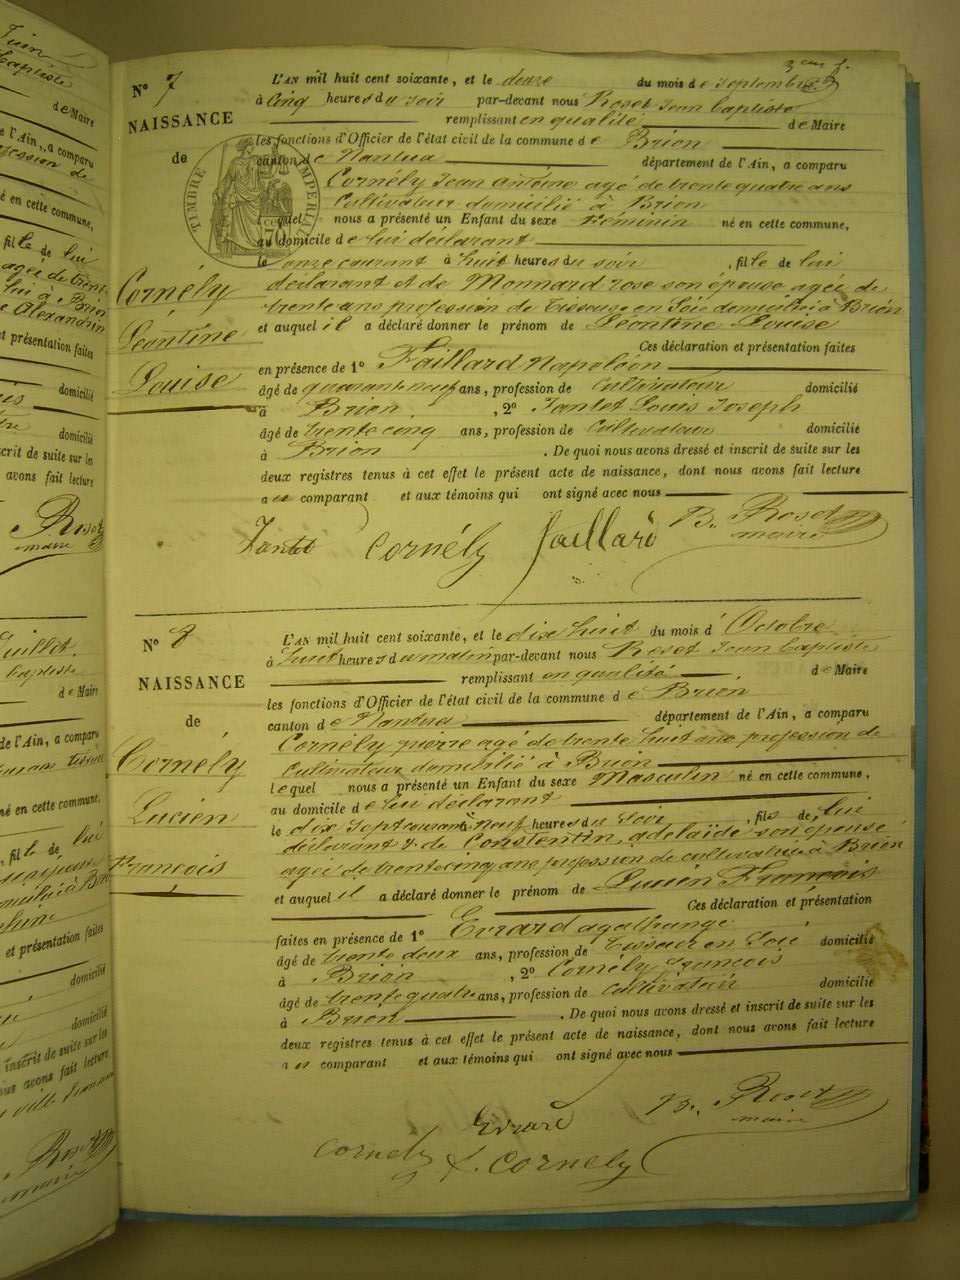 3eme f.
N° 7
NAISSANCE
de
Cornély
Léontine
Louise
TIMBRE IMPERIAL
L'AN mil huit cent soixante, et le douze du mois de Septembre
à Cinq heures du soir par-devant nous Roset Jean Baptiste
remplissant en qualité de Maire
les fonctions d'Officier de l'état civil de la commune de Brion
canton de Nantua département de l'Ain, a comparu
Cornély Jean Antoine agé de trente quatre ans
Cultivateur domicilié à Brion
lequel nous a présenté un Enfant du sexe Féminin né en cette commune,
au domicile de lui déclarant
le onze courant à huit heures du soir, fille de lui
déclarant et de Monnard rose son épouse agée de
trente ans profession de Tisseuse en Soie domiciliée à Brion
et auquel il a déclaré donner le prénom de Léontine Louise
Ces déclaration et présentation faites
en présence de 1° Faillard Napoléon
âgé de quarante neuf ans, profession de Cultivateur domicilié
à Brion, 2° Jantet Louis Joseph
âgé de trente cinq ans, profession de Cultivateur domicilié
à Brion. De quoi nous avons dressé et inscrit de suite sur les
deux registres tenus à cet effet le présent acte de naissance, dont nous avons fait lecture
au comparant et aux témoins qui ont signé avec nous
Jantet Cornély Faillard B. Roset
maire
N° 8
NAISSANCE
de
Cornély
Lucien
François
L'AN mil huit cent soixante, et le dix huit du mois d'Octobre
à huit heures du matin par-devant nous Roset Jean Baptiste
remplissant en qualité de Maire
les fonctions d'Officier de l'état civil de la commune de Brion
canton de Nantua département de l'Ain, a comparu
Cornély pierre agé de trente huit ans profession de
Cultivateur domicilié à Brion
lequel nous a présenté un Enfant du sexe Masculin né en cette commune,
au domicile de lui déclarant
le dix sept courant à neuf heures du soir, fils de lui
déclarant & de Constentin adelaïde son épouse
agée de trente cinq ans profession de cultivatrice à Brion
et auquel il a déclaré donner le prénom de Lucien François
Ces déclaration et présentation
faites en présence de 1° Evrard
âgé de trente deux ans, profession de Tisseur en Soie domicilié
à Brion, 2° Cornély François
âgé de trente quatre ans, profession de Cultivateur domicilié
à Brion. De quoi nous avons dressé et inscrit de suite sur les
deux registres tenus à cet effet le présent acte de naissance, dont nous avons fait lecture
au comparant et aux témoins qui ont signé avec nous
B. Roset
maire
Evrard
Cornély f. Cornély